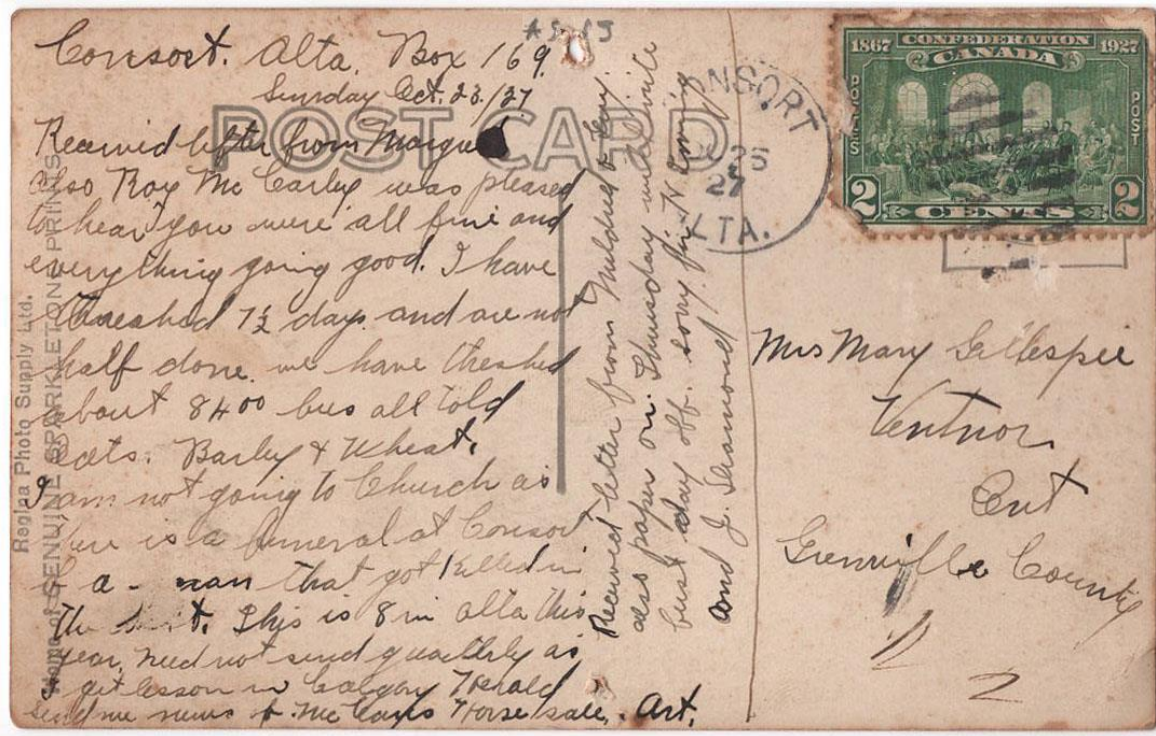 Consort. Alta. Box 169.
Sunday Oct. 23/27
POST CARD
Received letter from Margu
Also Roy McCarley was pleased
to hear you were all fine and
everything going good. I have
threshed 7½ days and are not
half done. we have threshed
about 8400 bus all told
oats. Barley & Wheat.
I am not going to Church as
there is a funeral at Consort
of a - man that got killed in
the This is 8 in alta this
year, need not send quarterly as
I get lesson in Calgary Herald
send me news of Horse sale. Art.
Received letter from Mildred &
also paper on. Thursday
best day off. sorry for
and J.
Regina Photo Supply Ltd.
Home of GENUINE SPARKLETONE PRINTS
ONSORT
25
27
LTA.
1867 CONFEDERATION 1927
CANADA
POSTES
POST
2 CENTS 2
Mrs Mary Gillespie
Ventnor
Ont
Grenville County